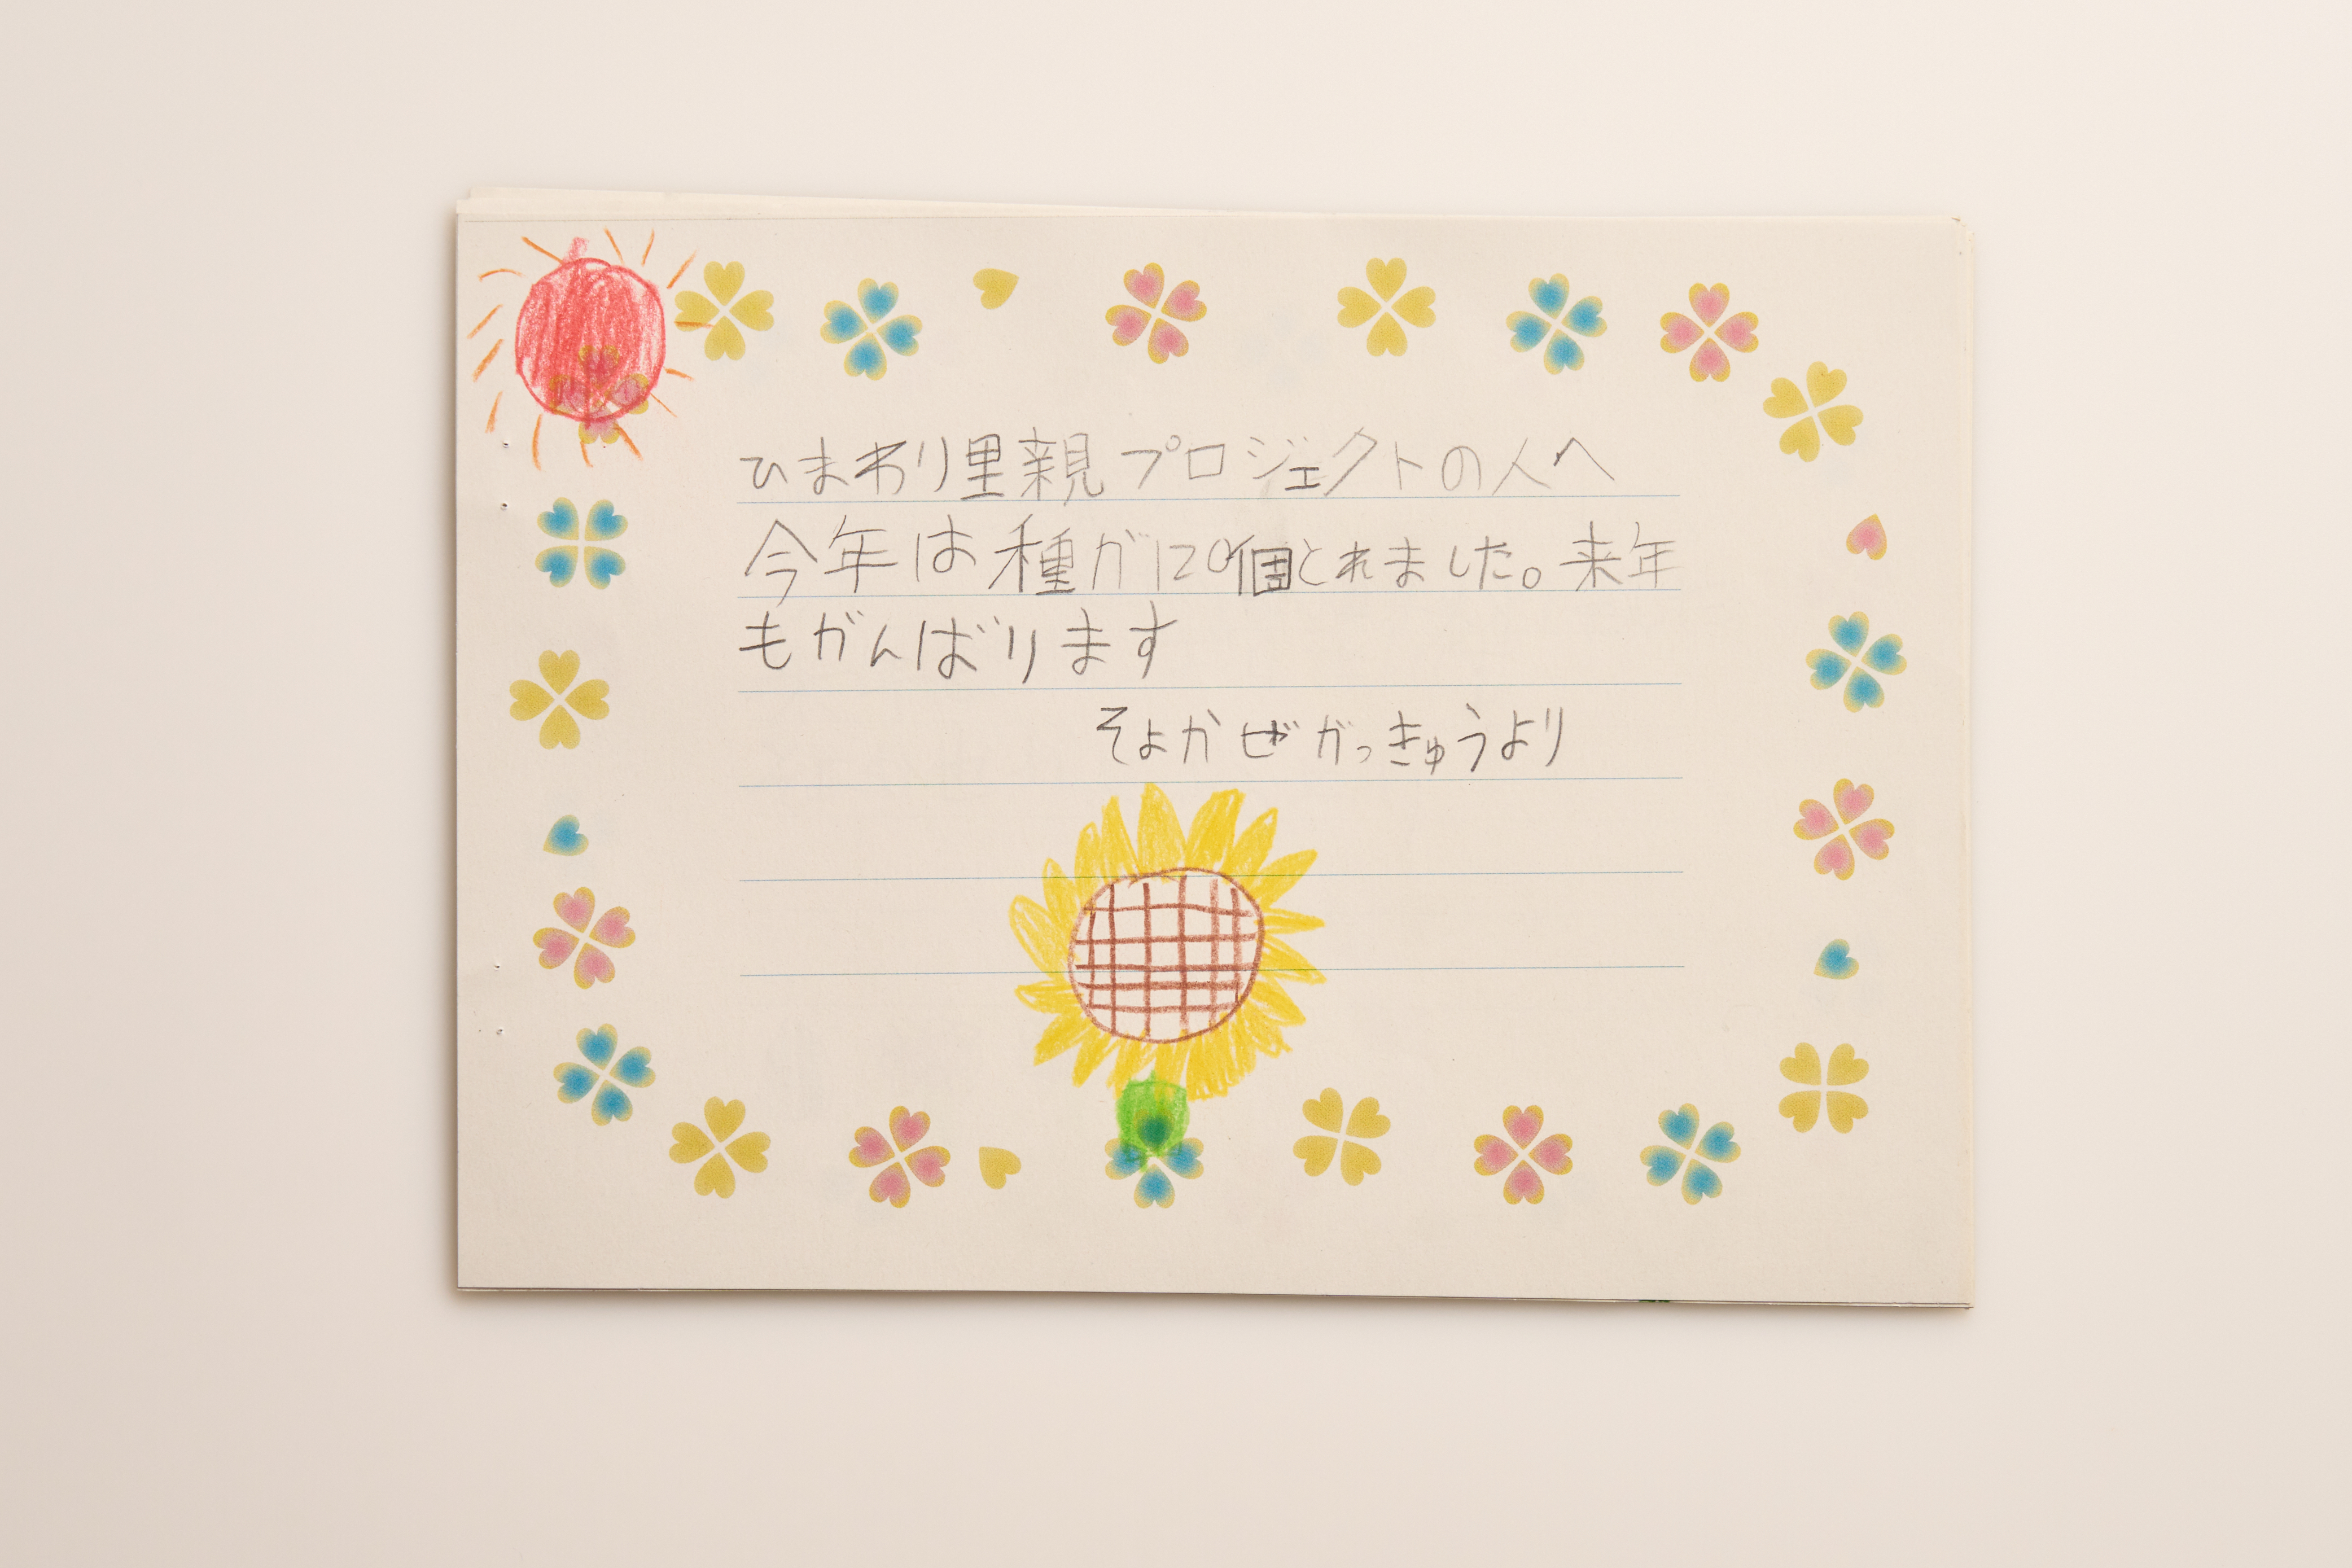 ひまわり里親プロジェクトの人へ
今年は種が120個とれました。来年
もがんばります
そよかぜがっきゅうより